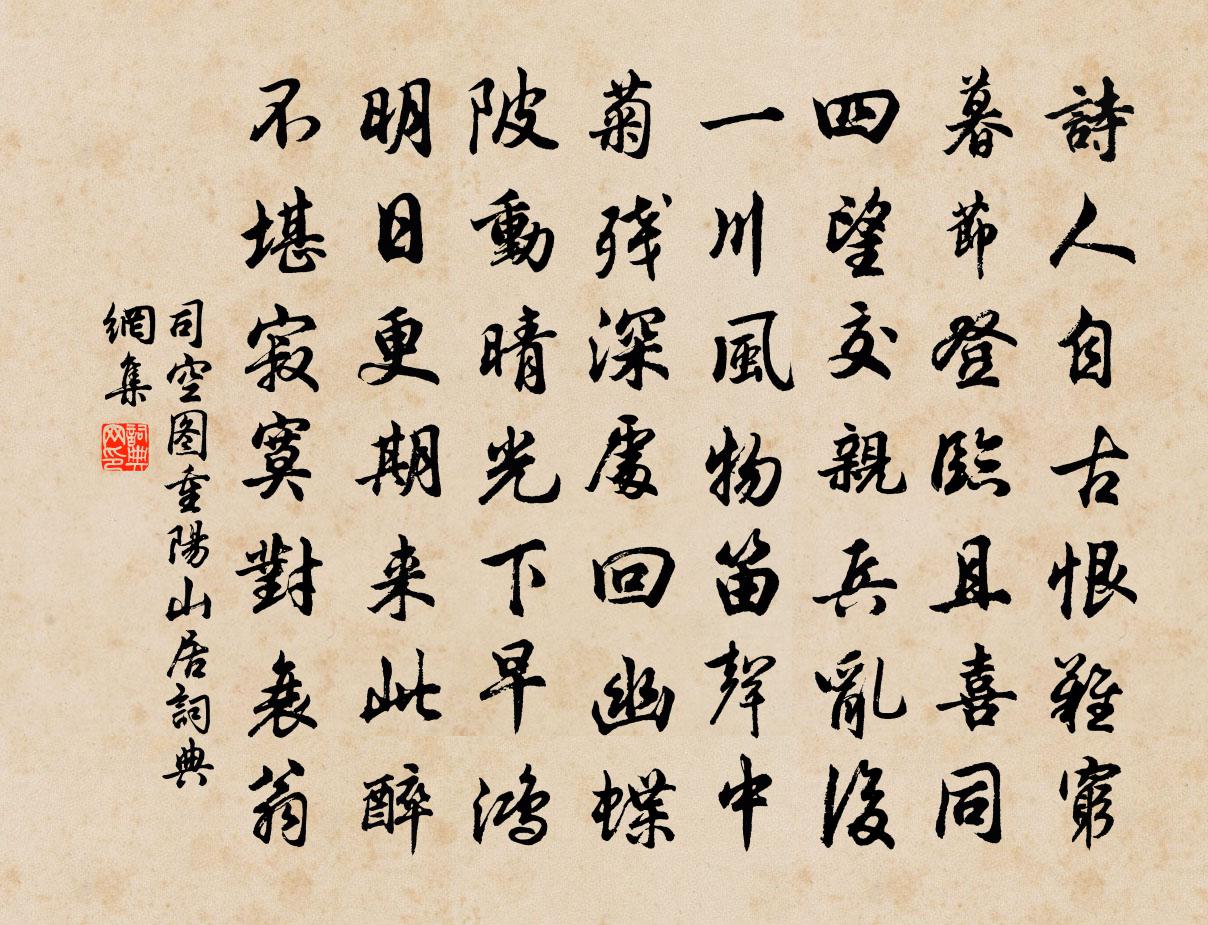 詩人自古恨難窮
暮節登臨且喜同
四望交親兵亂後
一川風物笛聲中
菊残深處回幽蝶
陂動晴光下早鴻
明日更期来此醉
不堪寂寞對衰翁
司空图重陽山居詞典
網集
詞典
网印